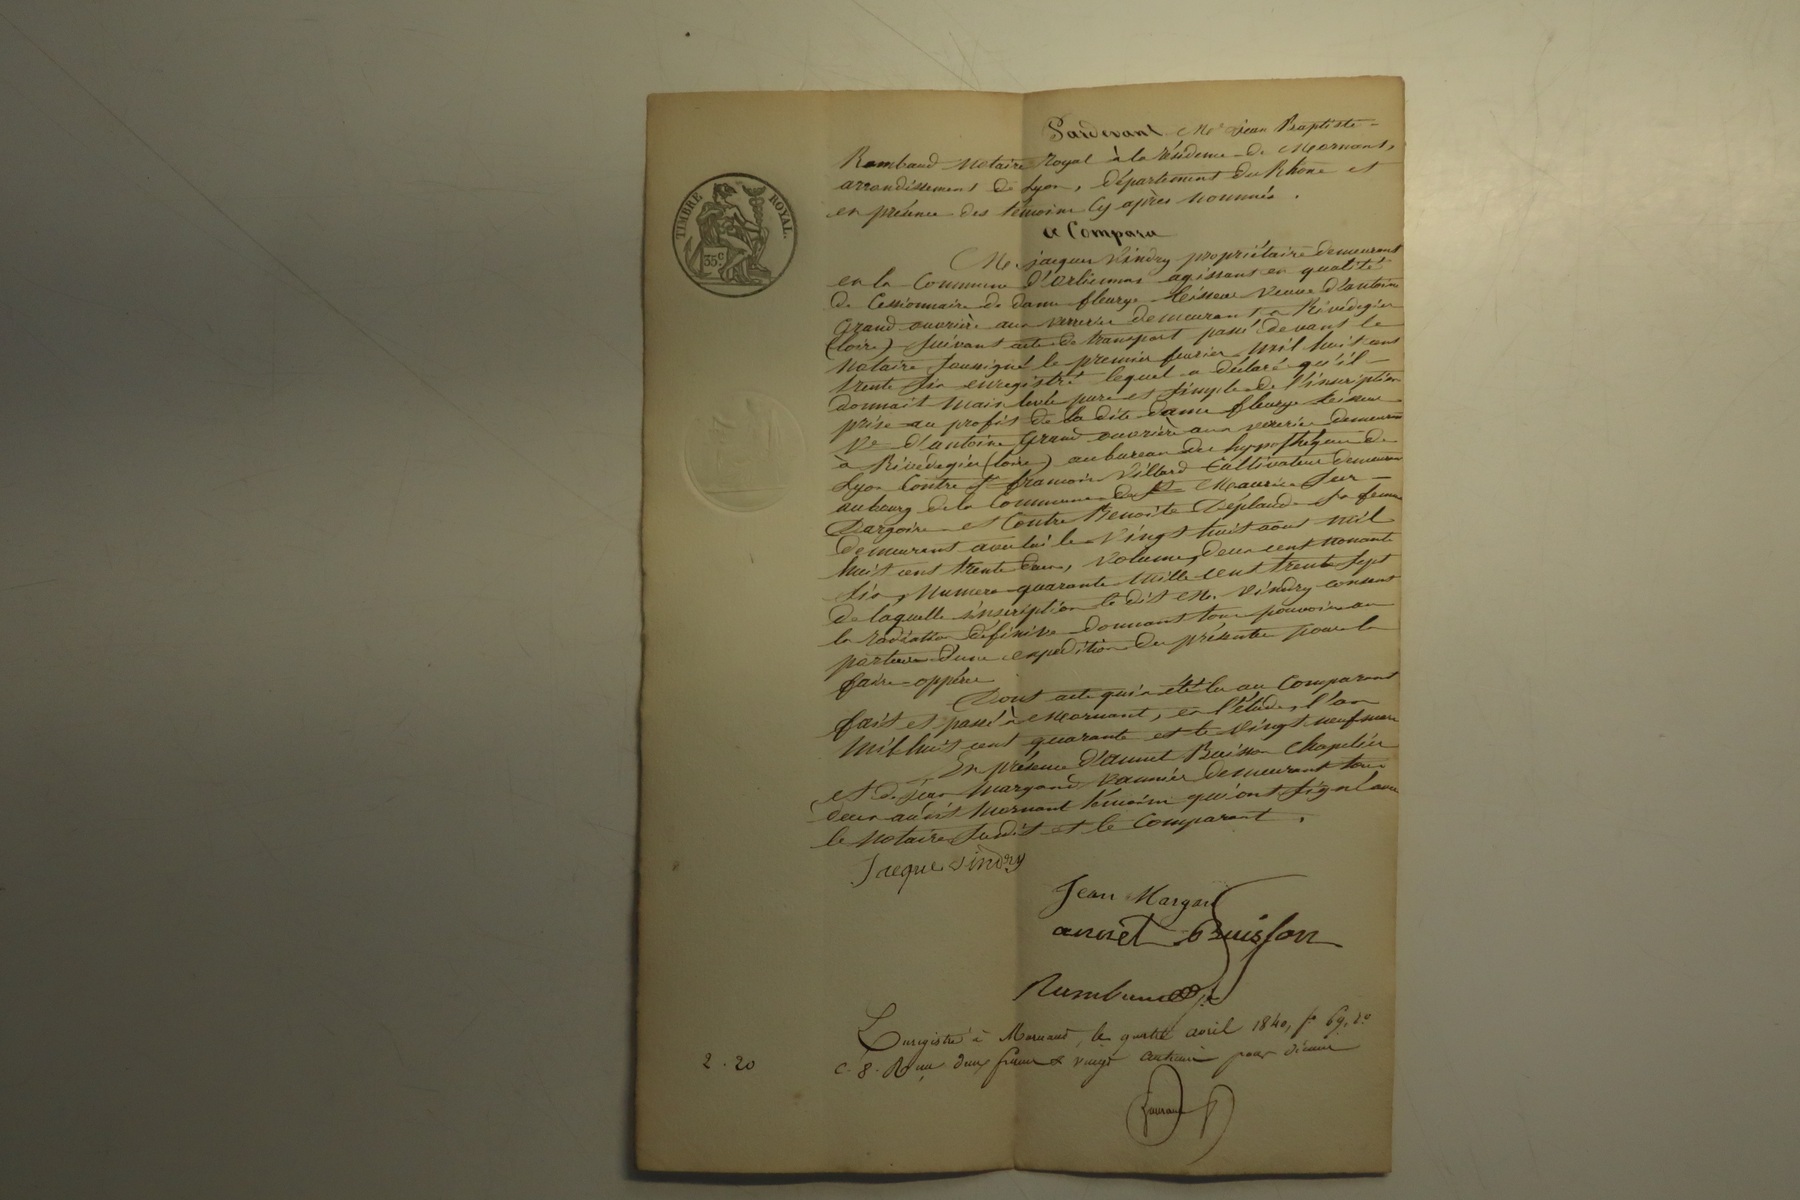 TIMBRE ROYAL.
35 c.
Pardevant Me Jean Baptiste
Rambaud Notaire Royal à la résidence de Mornant,
arrondissement de Lyon, département du Rhône et
en présence des témoins cy après nommés.
a Comparu
M. jacques Vindry propriétaire demeurant
en la Commune d'orliennas agissant en qualité
de Cessionnaire de dame fleurye Teisseur Veuve d'antoine
Grand ouvrière aux verreries demeurant à Rivedegier
(loire) Suivant acte de transport passé devant le
Notaire Soussigné le premier fevrier mil huit cent
trente Six enregistré lequel a déclaré qu'il
donnait main levée pure et Simple de l'inscription
prise au profit de la dite dame fleurye Teisseur
Ve d'antoine Grand ouvrière aux verreries demeurant
à Rivedegier (loire) au bureau des hypothèques de
Lyon Contre Sr francois Villard Cultivateur demeurant
au bourg de la Commune de St Maurice Sur
Dargoire et Contre Benoite Déplaude Sa femme
demeurant avec lui le Vingt huit aout mil
huit cent trente deux, volume, deux cent nonante
Six, Numero quarante mille cent trente Sept
de laquelle inscription le dit M. Vindry consent
la radiation définitive donnant tout pouvoir au
porteur d'une expedition des présentes pour la
faire oppérer
Dont acte qui a été lu au Comparant
fait et passé à Mornant, en l'étude, l'an
Mil huit cent quarante et le Vingt neuf mars
En présence d'annet Buisson Chapelier
et de jean Margand Vannier demeurant tous
deux audit Mornant témoins qui ont Signé avec
le Notaire Susdit et le Comparant.
Jacque Vindry
Jean Margand
annet Buisson
Rambaud
Enregistré à Mornant, le quatre avril 1840, fo 69, Vo
C. 8. Reçu deux francs vingt centimes pour décime
2.20